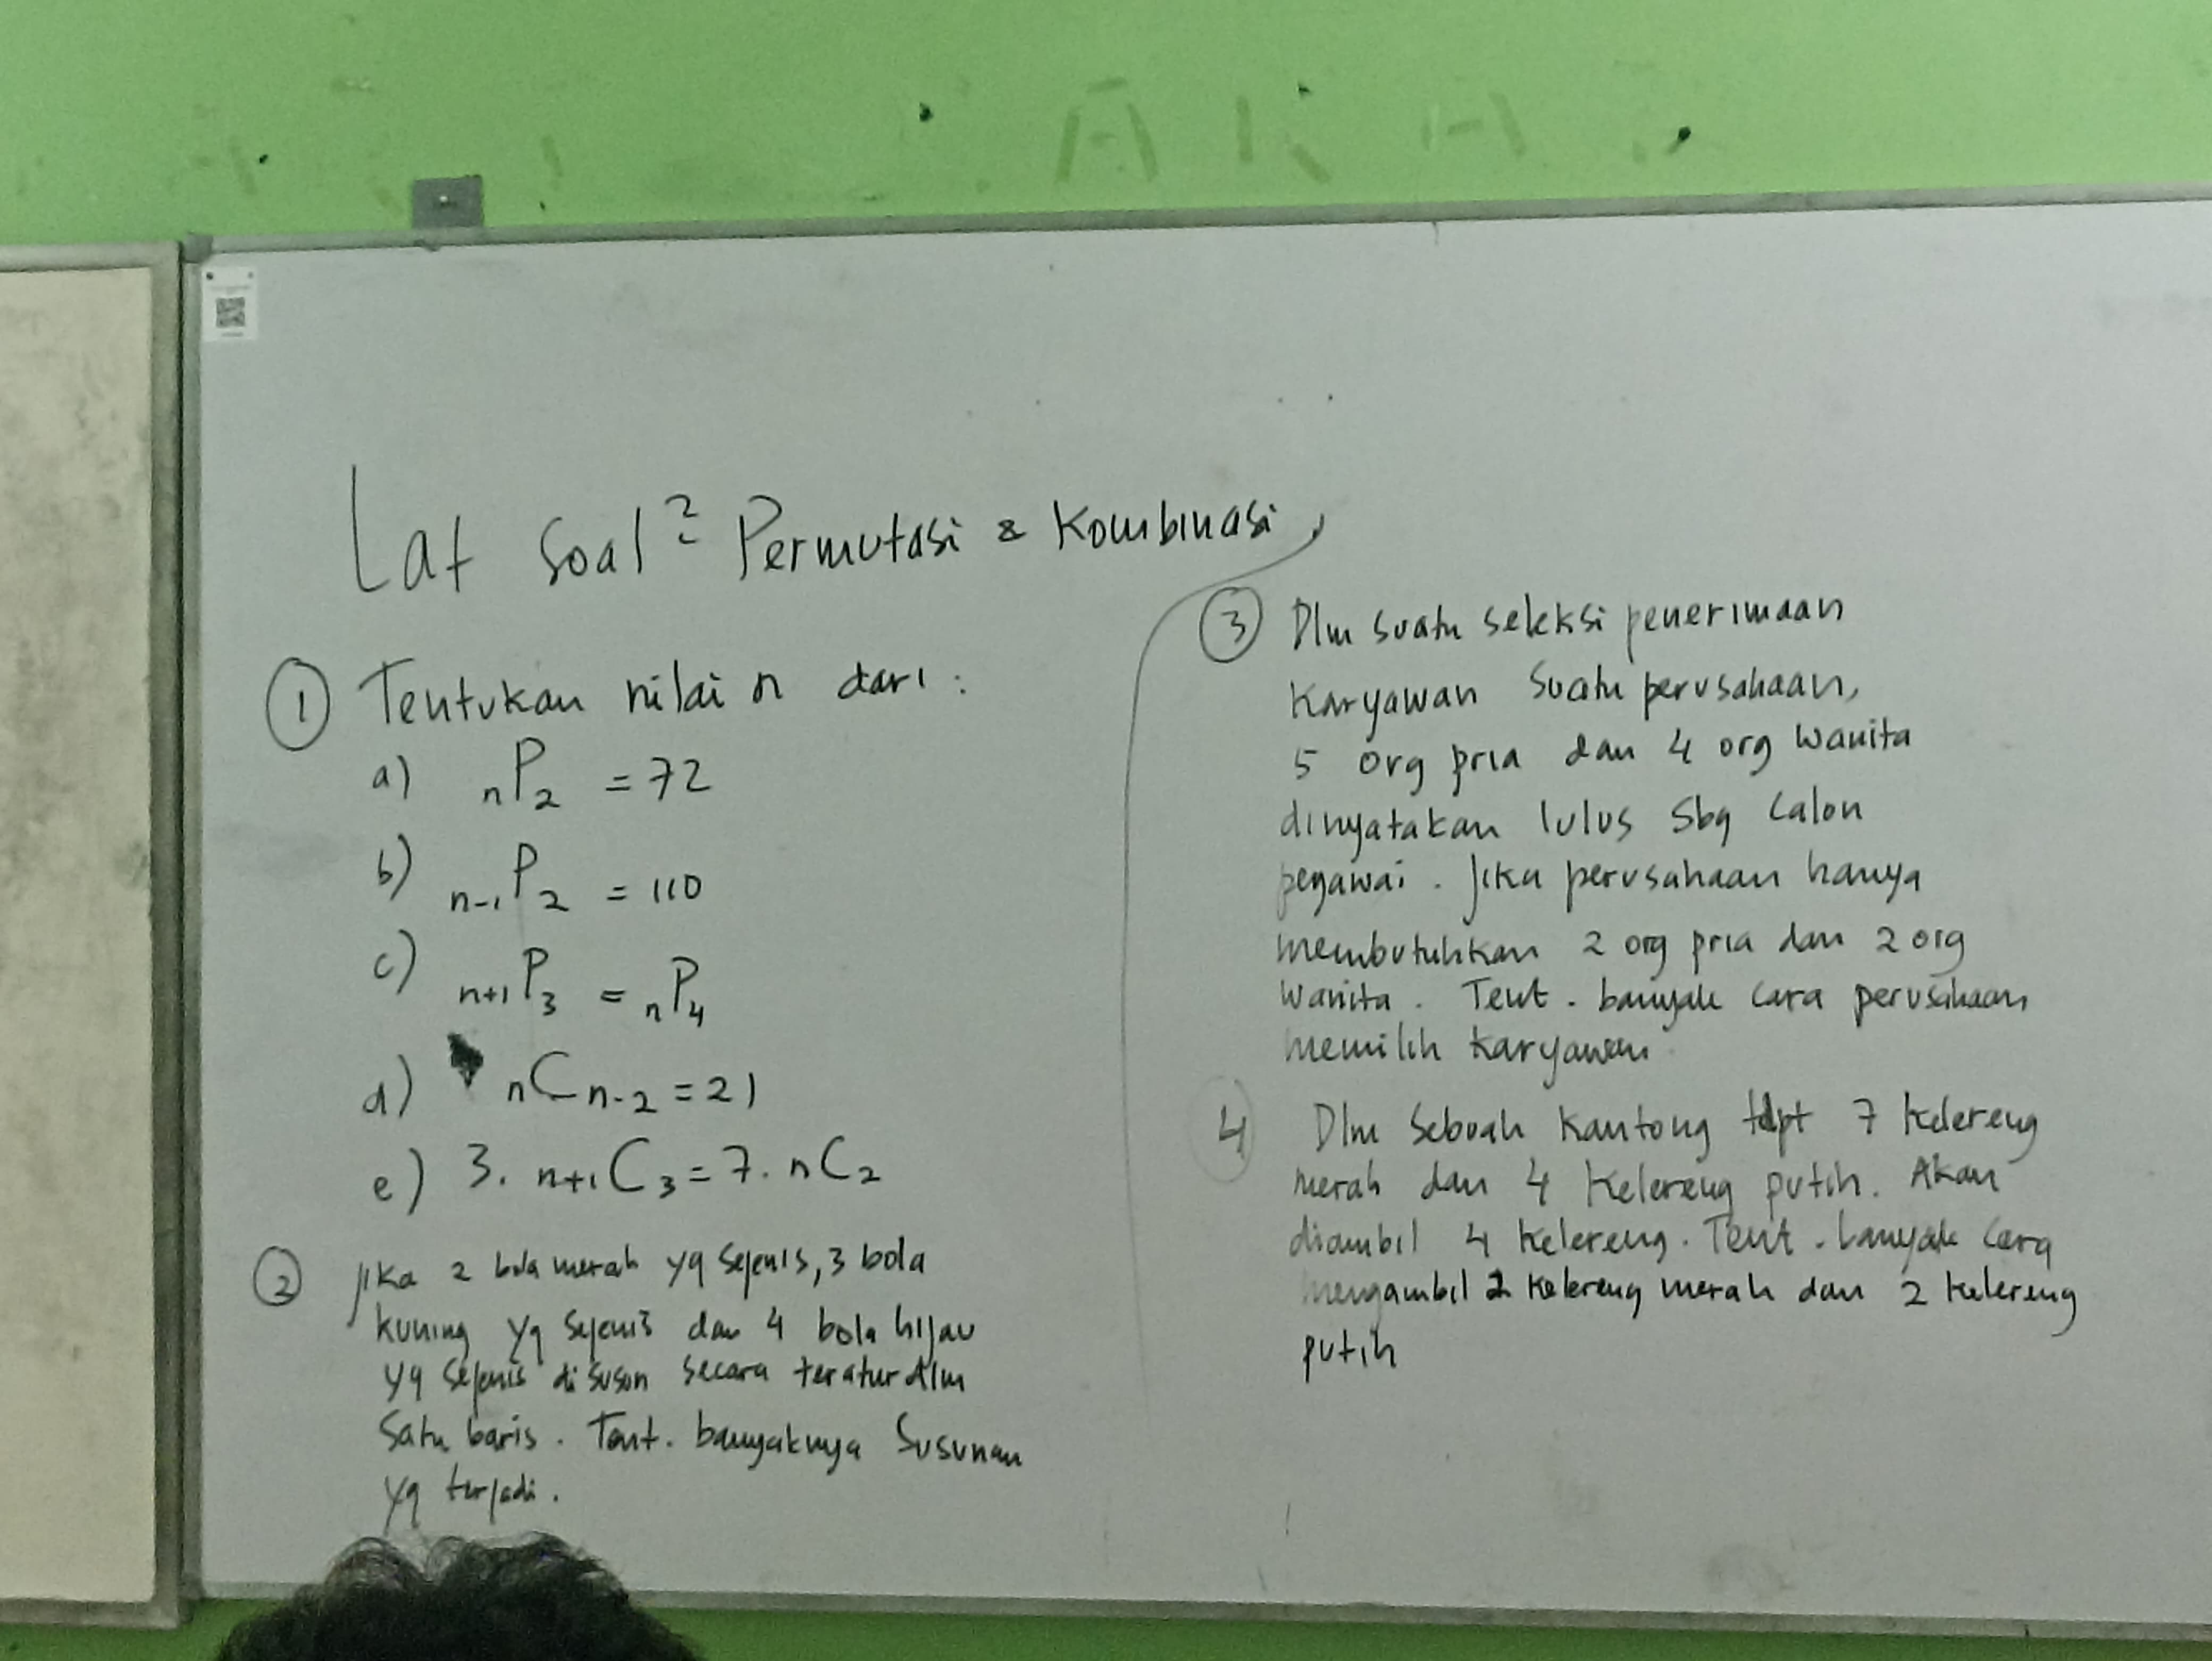 Lat Soal² Permutasi & Kombinasi
① Tentukan nilai n dari :
a) nP2 = 72
b) n-1P2 = 110
c) n+1P3 = nP4
d) nCn-2 = 21
e) 3. n+1C3 = 7. nC2
② Jika 2 bola merah yg sejenis, 3 bola
kuning yg sejenis dan 4 bola hijau
yg sejenis di susun secara teratur dlm
satu baris. Tent. banyaknya susunan
yg terjadi.
③ Dlm suatu seleksi penerimaan
karyawan suatu perusahaan,
5 org pria dan 4 org wanita
dinyatakan lulus sbg calon
pegawai. Jika perusahaan hanya
membutuhkan 2 org pria dan 2 org
wanita. Tent. banyak cara perusahaan
memilih karyawan
④ Dlm sebuah kantong tdpt 7 kelereng
merah dan 4 kelereng putih. Akan
diambil 4 kelereng. Tent. banyak cara
mengambil 2 kelereng merah dan 2 kelereng
putih